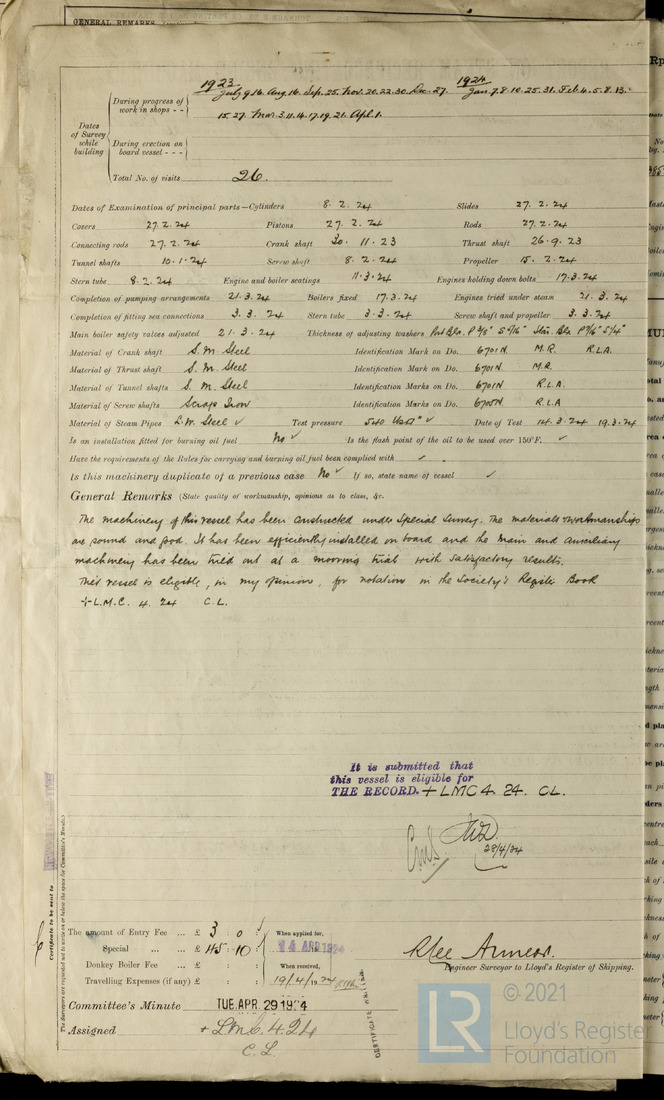 GENERAL REMARKS
1923 1924
July 9. 16. Aug. 16. Sep. 25. Nov. 20. 22. 30. Dec. 27. Jan. 7. 8. 10. 25. 31. Feb. 4. 5. 8. 13.
During progress of work in shops - -
15. 27. Mar. 3. 11. 14. 17. 19. 21. Apl. 1.
Dates of Survey while building
During erection on board vessel - - -
Total No. of visits 26.
Dates of Examination of principal parts—Cylinders 8. 2. 24 Slides 27. 2. 24
Covers 27. 2. 24 Pistons 27. 2. 24 Rods 27. 2. 24
Connecting rods 27. 2. 24 Crank shaft 30. 11. 23 Thrust shaft 26. 9. 23
Tunnel shafts 10. 1. 24 Screw shaft 8. 2. 24 Propeller 15. 2. 24
Stern tube 8. 2. 24 Engine and boiler seatings 11. 3. 24 Engines holding down bolts 17. 3. 24
Completion of pumping arrangements 21. 3. 24 Boilers fixed 17. 3. 24 Engines tried under steam 21. 3. 24
Completion of fitting sea connections 3. 3. 24 Stern tube 3. 3. 24 Screw shaft and propeller 3. 3. 24
Main boiler safety valves adjusted 21. 3. 24 Thickness of adjusting washers Port Blr.
Material of Crank shaft S. M. Steel Identification Mark on Do. 6701N M.R. R.L.A.
Material of Thrust shaft S. M. Steel Identification Mark on Do. 6701N M.R.
Material of Tunnel shafts S. M. Steel Identification Marks on Do. 6701N R.L.A.
Material of Screw shafts Scrap Iron Identification Marks on Do. R.L.A
Material of Steam Pipes Steel ✓ Test pressure 540 ✓ Date of Test 14. 3. 24 19. 3. 24
Is an installation fitted for burning oil fuel No ✓ Is the flash point of the oil to be used over 150°F. ✓
Have the requirements of the Rules for carrying and burning oil fuel been complied with ✓
Is this machinery duplicate of a previous case No ✓ If so, state name of vessel ✓
General Remarks (State quality of workmanship, opinions as to class, &c.
The machinery of this vessel has been constructed under Special Survey. The materials & workmanship
are sound and good. It has been efficiently installed on board and the Main and Auxiliary
machinery has been tried out at a mooring trial with satisfactory results.
This vessel is eligible, in my opinion, for notation in the Society's Register Book
+ L.M.C. 4. 24 C.L.
It is submitted that
this vessel is eligible for
THE RECORD. + LMC 4. 24. CL.
29/4/24
Certificate to be sent to
The Surveyors are requested not to write on or below the space for Committee's Minute.
The amount of Entry Fee ... £ 3 : 0 :
Special ... ... £ 45 : 10 :
Donkey Boiler Fee ... £ : :
Travelling Expenses (if any) £ : :
When applied for,
14 APR 1924
When received,
19/4/1924
Engineer Surveyor to Lloyd's Register of Shipping.
Committee's Minute TUE. APR. 29 1924
Assigned + L.M.C. 4. 24
C. L.
CERTIFICATE WRITTEN
LR
© 2021
Lloyd's Register
Foundation